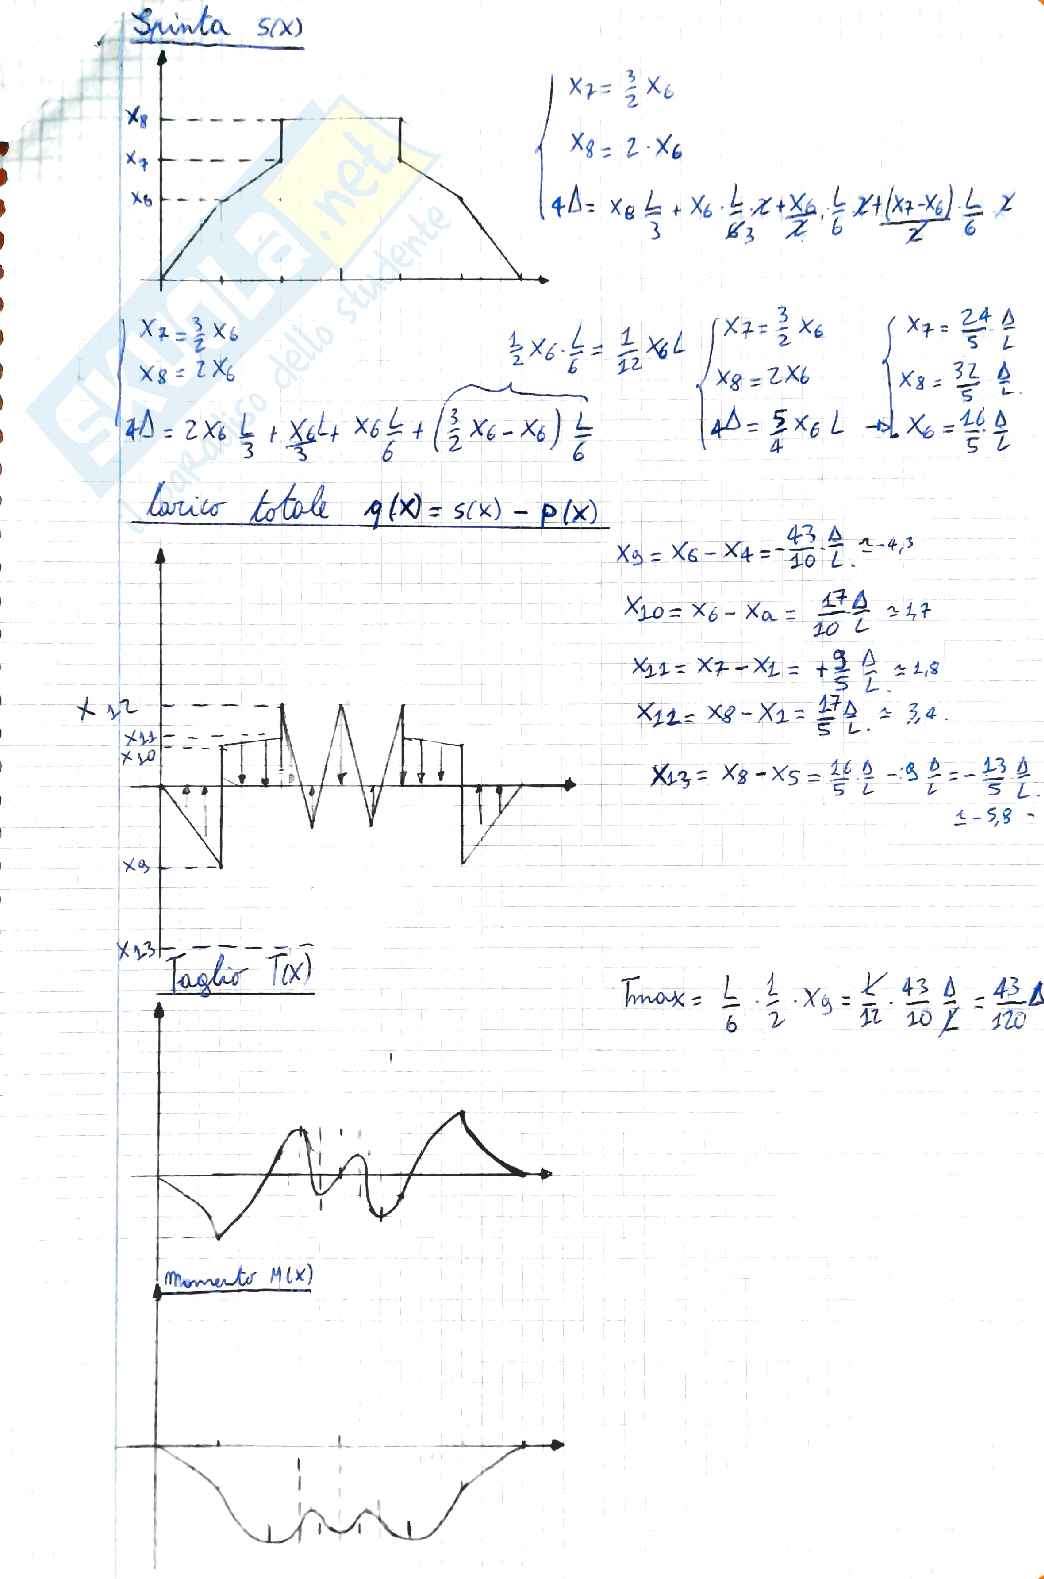 Spinta S(x)
x8
x7
x6
x7 = 3/2 x6
x8 = 2 · x6
4Δ = x8 L/3 + x6 · L/63 · 2 + x6/2 · L/6 2 + (x7 - x6)/2 · L/6 2
SKUOLA.net
il paradiso dello studente
x7 = 3/2 x6
x8 = 2x6
4Δ = 2x6 L/3 + x6L/3 + x6 L/6 + (3/2 x6 - x6) L/6
1/2 x6 · L/6 = 1/12 x6 L
x7 = 3/2 x6
x8 = 2x6
4Δ = 5/4 x6 L →
x7 = 24/5 Δ/L
x8 = 32/5 Δ/L.
x6 = 16/5 · Δ/L
Carico totale q(x) = s(x) - p(x)
x9 = x6 - x4 = - 43/10 · Δ/L. ≃ -4,3
x10 = x6 - xa = 17/10 Δ/L ≃ 1,7
x11 = x7 - x1 = + 9/5 Δ/L. ≃ 1,8
x12 = x8 - x1 = 17/5 Δ/L. ≃ 3,4.
x13 = x8 - x5 = 16/5 Δ/L - 9 Δ/L = - 13/5 Δ/L.
≃ -5,8 -
x12
x11
x10
x9
x13
Taglio T(x)
Tmax = L/6 · 1/2 · x9 = L/12 · 43/10 Δ/L = 43/120 Δ
Momento M(x)